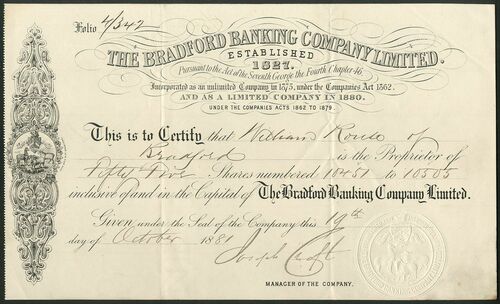 Folio 4/342
THE BRADFORD BANKING COMPANY LIMITED.
ESTABLISHED
1827.
Pursuant to the Act of the Seventh George the Fourth Chapter 46
Incorporated as an unlimited Company in 1875, under the Companies Act 1862.
AND AS A LIMITED COMPANY IN 1880.
UNDER THE COMPANIES ACTS 1862 TO 1879.
This is to Certify that William Rouse of
Bradford is the Proprietor of
Fifty Five Shares numbered 10451 to 10505
inclusive of and in the Capital of The Bradford Banking Company Limited.
Given under the Seal of the Company this 19th
day of October 1881
Joseph Croft
MANAGER OF THE COMPANY.